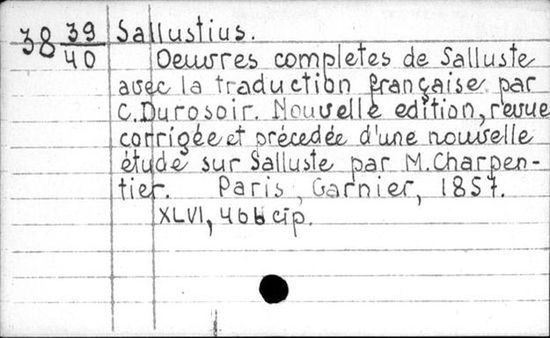 38 39/40 Sallustius.
Oeuvres completes de Salluste
avec la traduction française par
C.Durosoir. Nouvelle edition, revue
corrigée et précedée d'une nouvelle
étude sur Salluste par M.Charpen-
tier. Paris, Garnier, 1857.
XLVI, 466 cτp.